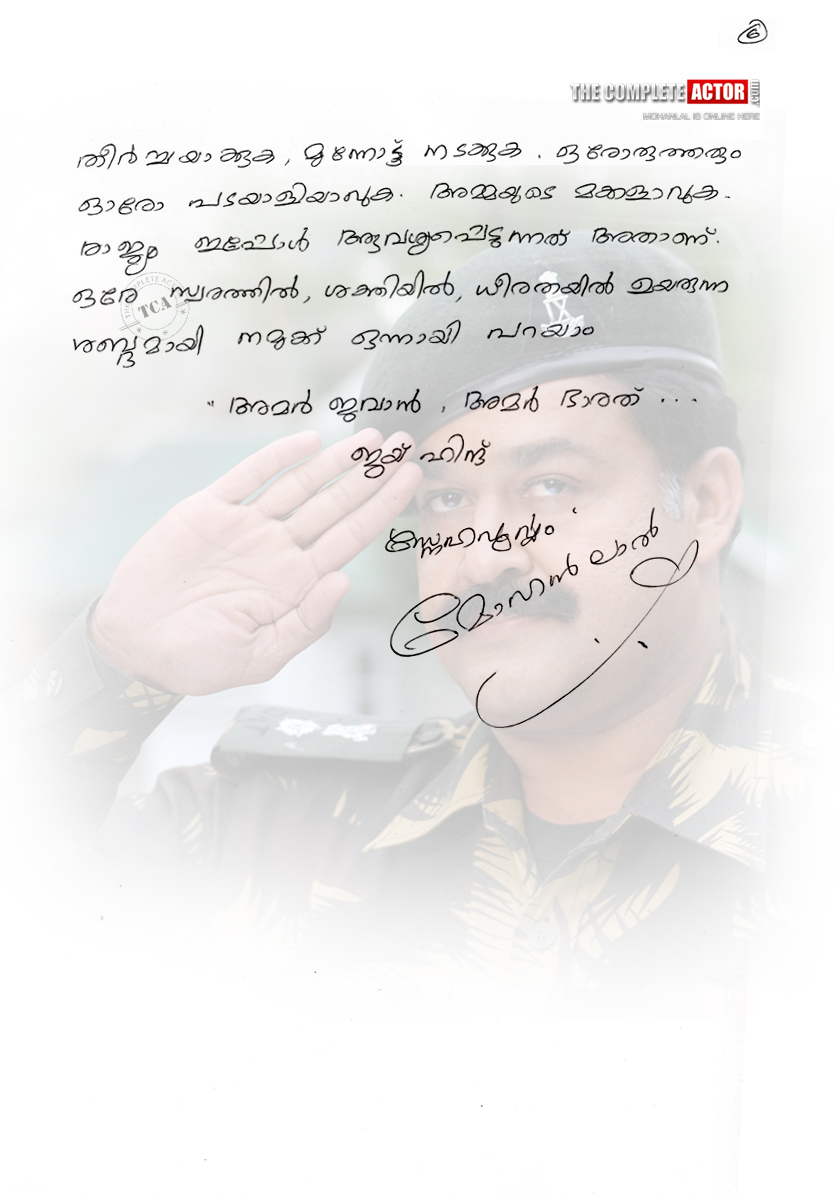 6
THE COMPLETE ACTOR .COM
MOHANLAL IS ONLINE HERE
തീർച്ചയാക്കുക, മുന്നോട്ട് നടക്കുക. ഒരോരുത്തരും
ഓരോ പടയാളിയാവുക. അമ്മയുടെ മക്കളാവുക.
രാജ്യം ഇപ്പോൾ ആവശ്യപ്പെടുന്നത് അതാണ്.
ഒരേ സ്വരത്തിൽ, ശക്തിയിൽ, ധീരതയിൽ ഉയരുന്ന
TCA
ശബ്ദമായി നമുക്ക് ഒന്നായി പറയാം
" അമർ ജവാൻ, അമർ ഭാരത് ...
ജയ് ഹിന്ദ്
സ്നേഹപൂർവ്വം
മോഹൻലാൽ
IX